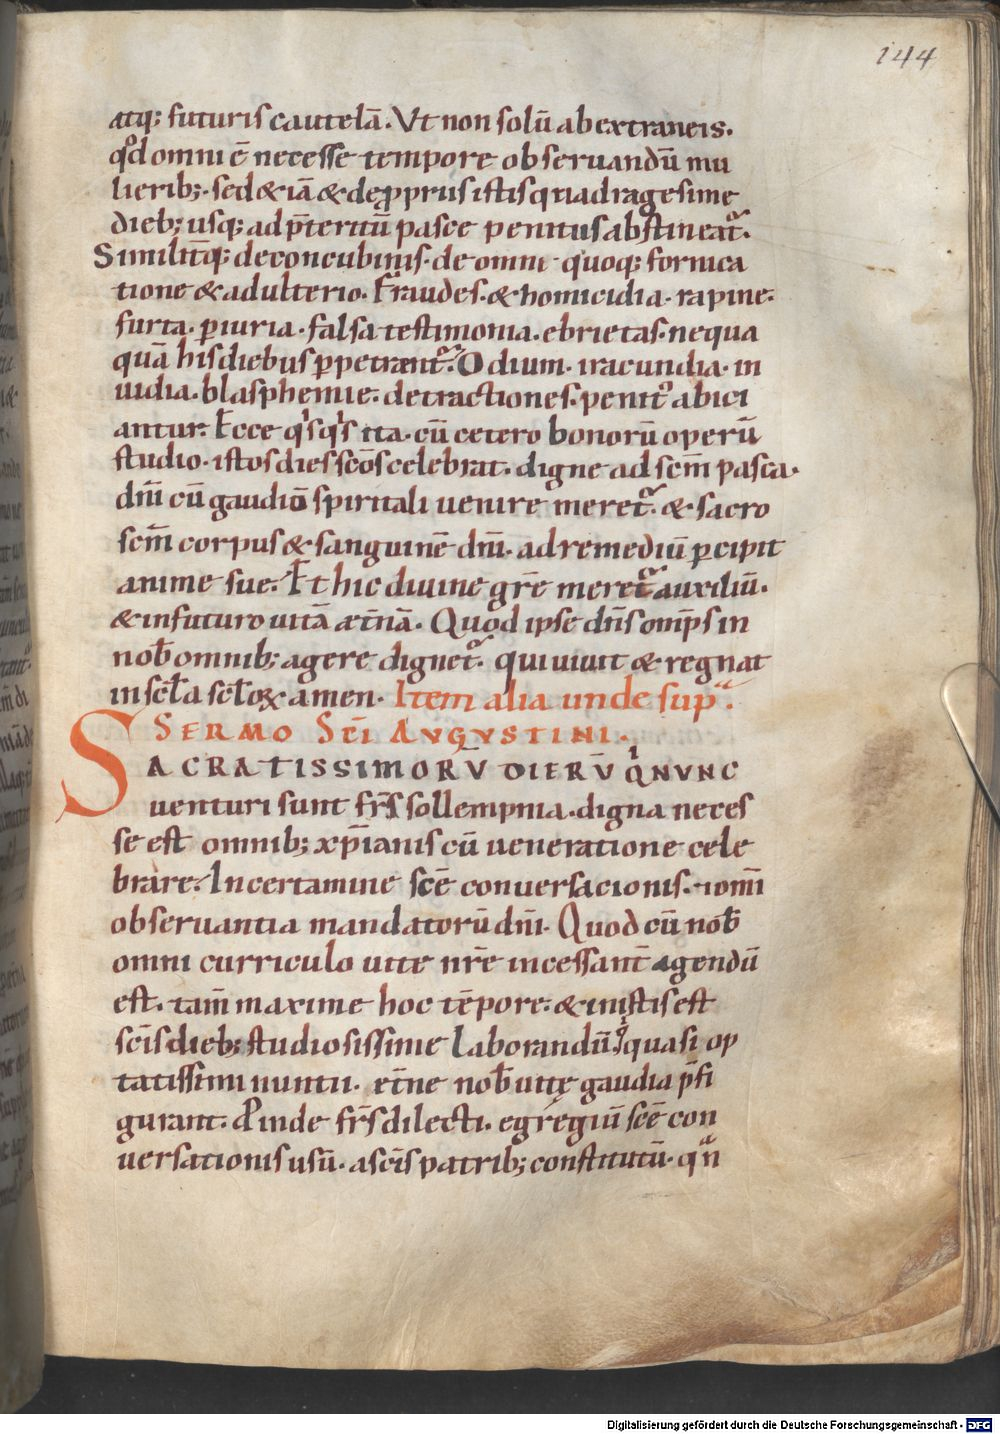 144
atq; futuris cautelā. Vt non solū ab extraneis.
qd omni ē necesse tempore obseruandū mu
lierib; sed & iā & de pprus istis quadragesime
dieb; usq; ad p̄teritū pasce penitus abstineat.
Similitq; de concubinis. de omni quoq; fornica
tione & adulterio. Fraudes. & homicidia. rapine.
furta. piuria. falsa testimonia. ebrietas. nequa
quā his diebus ppetrent. Odium. iracundia. in
uidia. blasphemie. detractiones. penit abici
antur. Ecce qsqs ita. cū cetero bonorū operū
studio. istos dies scōs celebrat. digne ad scm̄ pasca.
dn̄i cū gaudio spiritali uenire meret. & sacro
scm̄ corpus & sanguinē dn̄i. ad remediū pcipit
anime sue. Et hic diuine gr̄e meret auxiliū.
& in futuro uitā æt̄nā. Quod ipse dn̄s om̄ps in
nob̄ omnib; agere dignet. qui uiuit & regnat
in scl̄a scl̄oꝝ amen. Item alia unde sup.
SERMO SC̄I AVGVSTINI.
SACRATISSIMORV̄ DIERV̄ Q NVNC
uenturi sunt fr̄s sollempnia. digna neces
se est omnib; xp̄ianis cū ueneratione cele
brare. In certamine scē conuersacionis. in om̄i
obseruantia mandatorū dn̄i. Quod cū nob̄
omni curriculo uite nr̄e incessant̄ agendū
est. tam̄ maxime hoc tēpore. & in istis est
scīs dieb; studiosissime laborandū. q quasi op
tatissimi nuntii. et̄ne nob̄ uitę gaudia p̄fi
gurant. Pinde fr̄s dilecti. egregiū scē con
uersationis usū. a scīs patrib; constitutū. qn̄
Digitalisierung gefördert durch die Deutsche Forschungsgemeinschaft - DFG